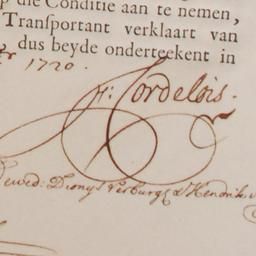 die Conditie aan te nemen,
Transportant verklaart van
, dus beyde onderteekent in
1720.
Cordelois.
Wed: Dionys Verburg & Hendrik